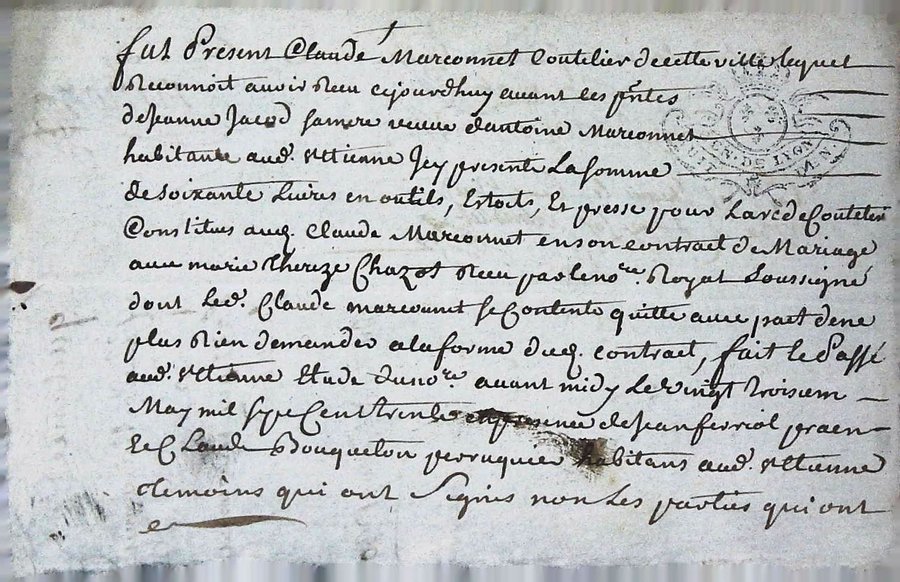 fut Present Claude Marconnet Coutelier decette ville lequel
Reconnoit avoir Receu cejourdhuy avant les pntes
deJeanne Jacod Samere veuve dantoine Marconnet
habitante aud. St Etienne Jcy presente La Somme
de Soixante Livres en outils, Estocts, Et presse pour Lart de Coutelier
Constitués auq. Claude Marconnet en son contract de Mariage
avec marie thereze Chazot Receu par le nore. Royal Soussigné
dont Led. Claude marconnet se Contente quitte avec pact de ne
plus Rien demander a la forme duq. contract, fait le Passé
aud. St Etienne Etude dusnore. avant midy Le vingt troisem
May mil sept Cent trente en presence de Jean ferriol praen
Et Claude Bouqueton peruquier habitans aud. St Etienne
temoins qui ont Signés non Les parties qui ont
EN. DE LYON